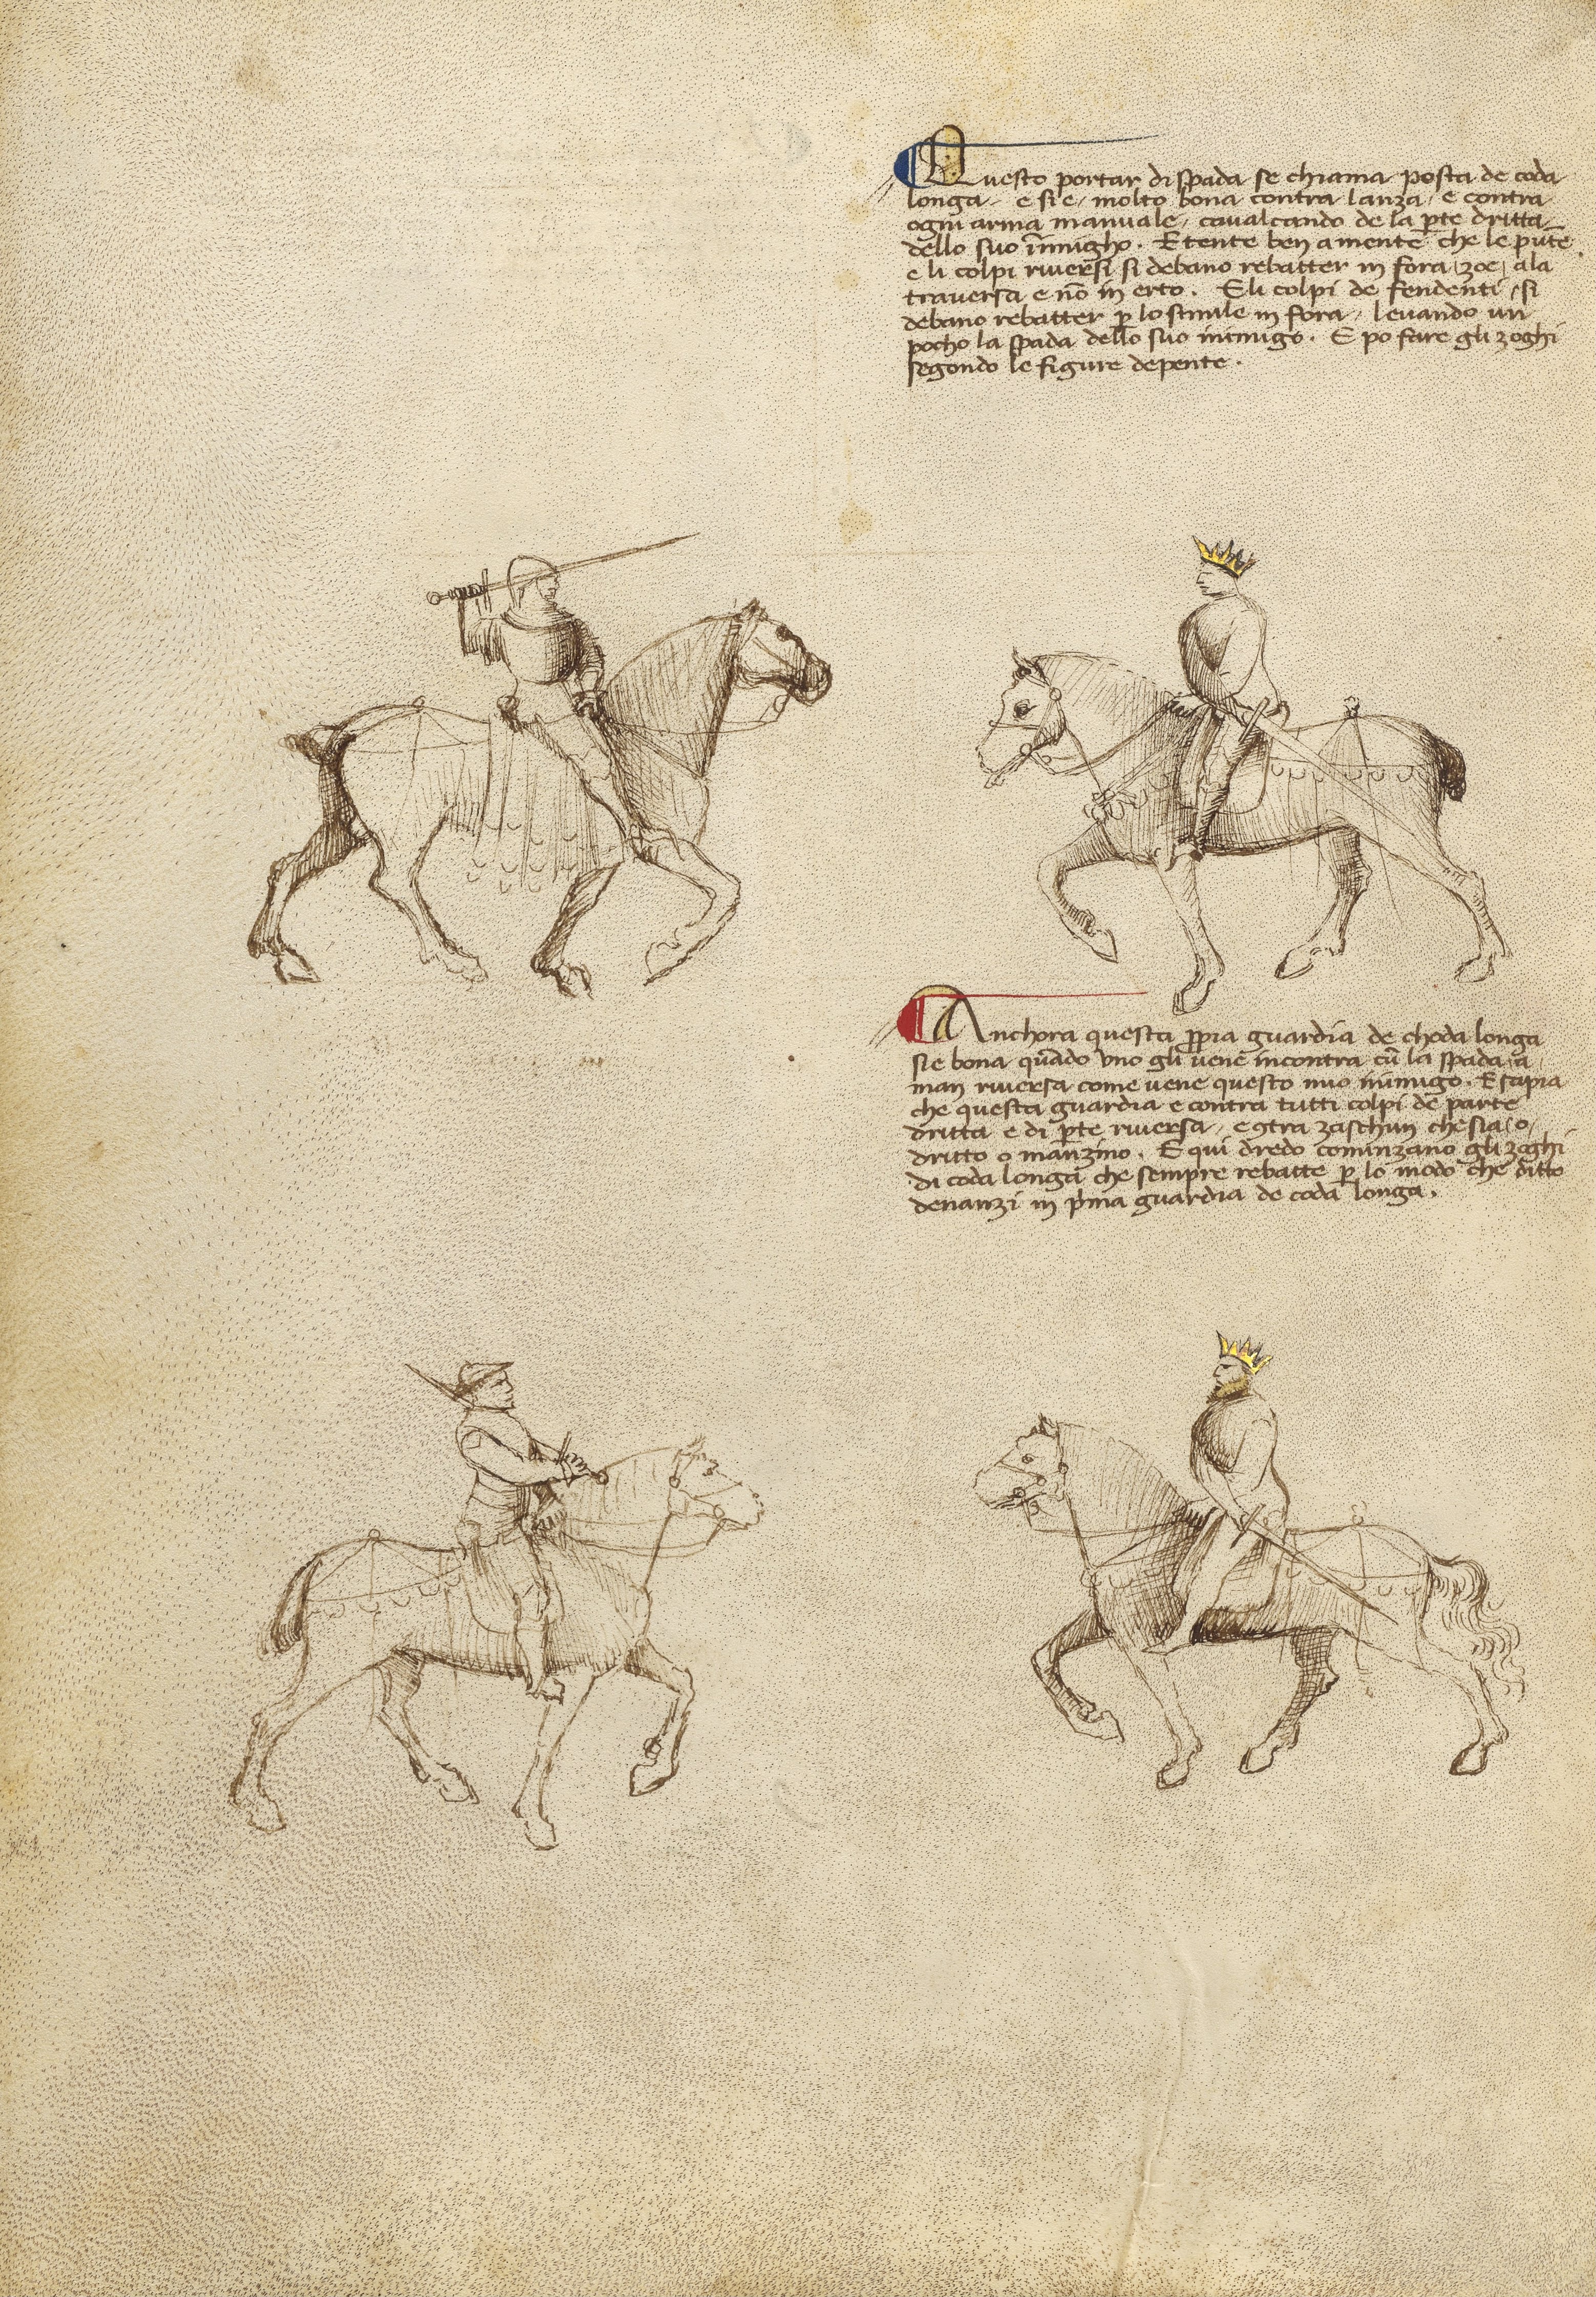 Questo portar di spada se chiama posta de coda
longa. e si e, molto bona contra lanza, e contra
ogni arma manuale, cavalcando de la p̄te dritta
dello suo inimigho. E tente ben a mente che le pūte
e li colpi riversi si debano rebatter in fora, zoe, ala
traversa e nō in erto. E li colpi de fendenti, si
debano rebatter p̱ lo simile in fora, levando un
pocho la spada dello suo inimigo. E po fare gli zoghi
segondo le figure depente.
Anchora questa p̱pia guardia de choda longa
si e bona quādo uno gli vene incontra cū la spada a
man riversa come vene questo mio inimigo. E sapia
che questa guardia e contra tutti colpi de parte
dritta e di p̱te riversa, e ꝯtra zaschun che sia, o,
dritto o manzino. E qui dredo cominzano gli zoghi
di coda longa che sempre rebatte p̱ lo modo che ditto
denanzi in p̄ma guardia de coda longa.